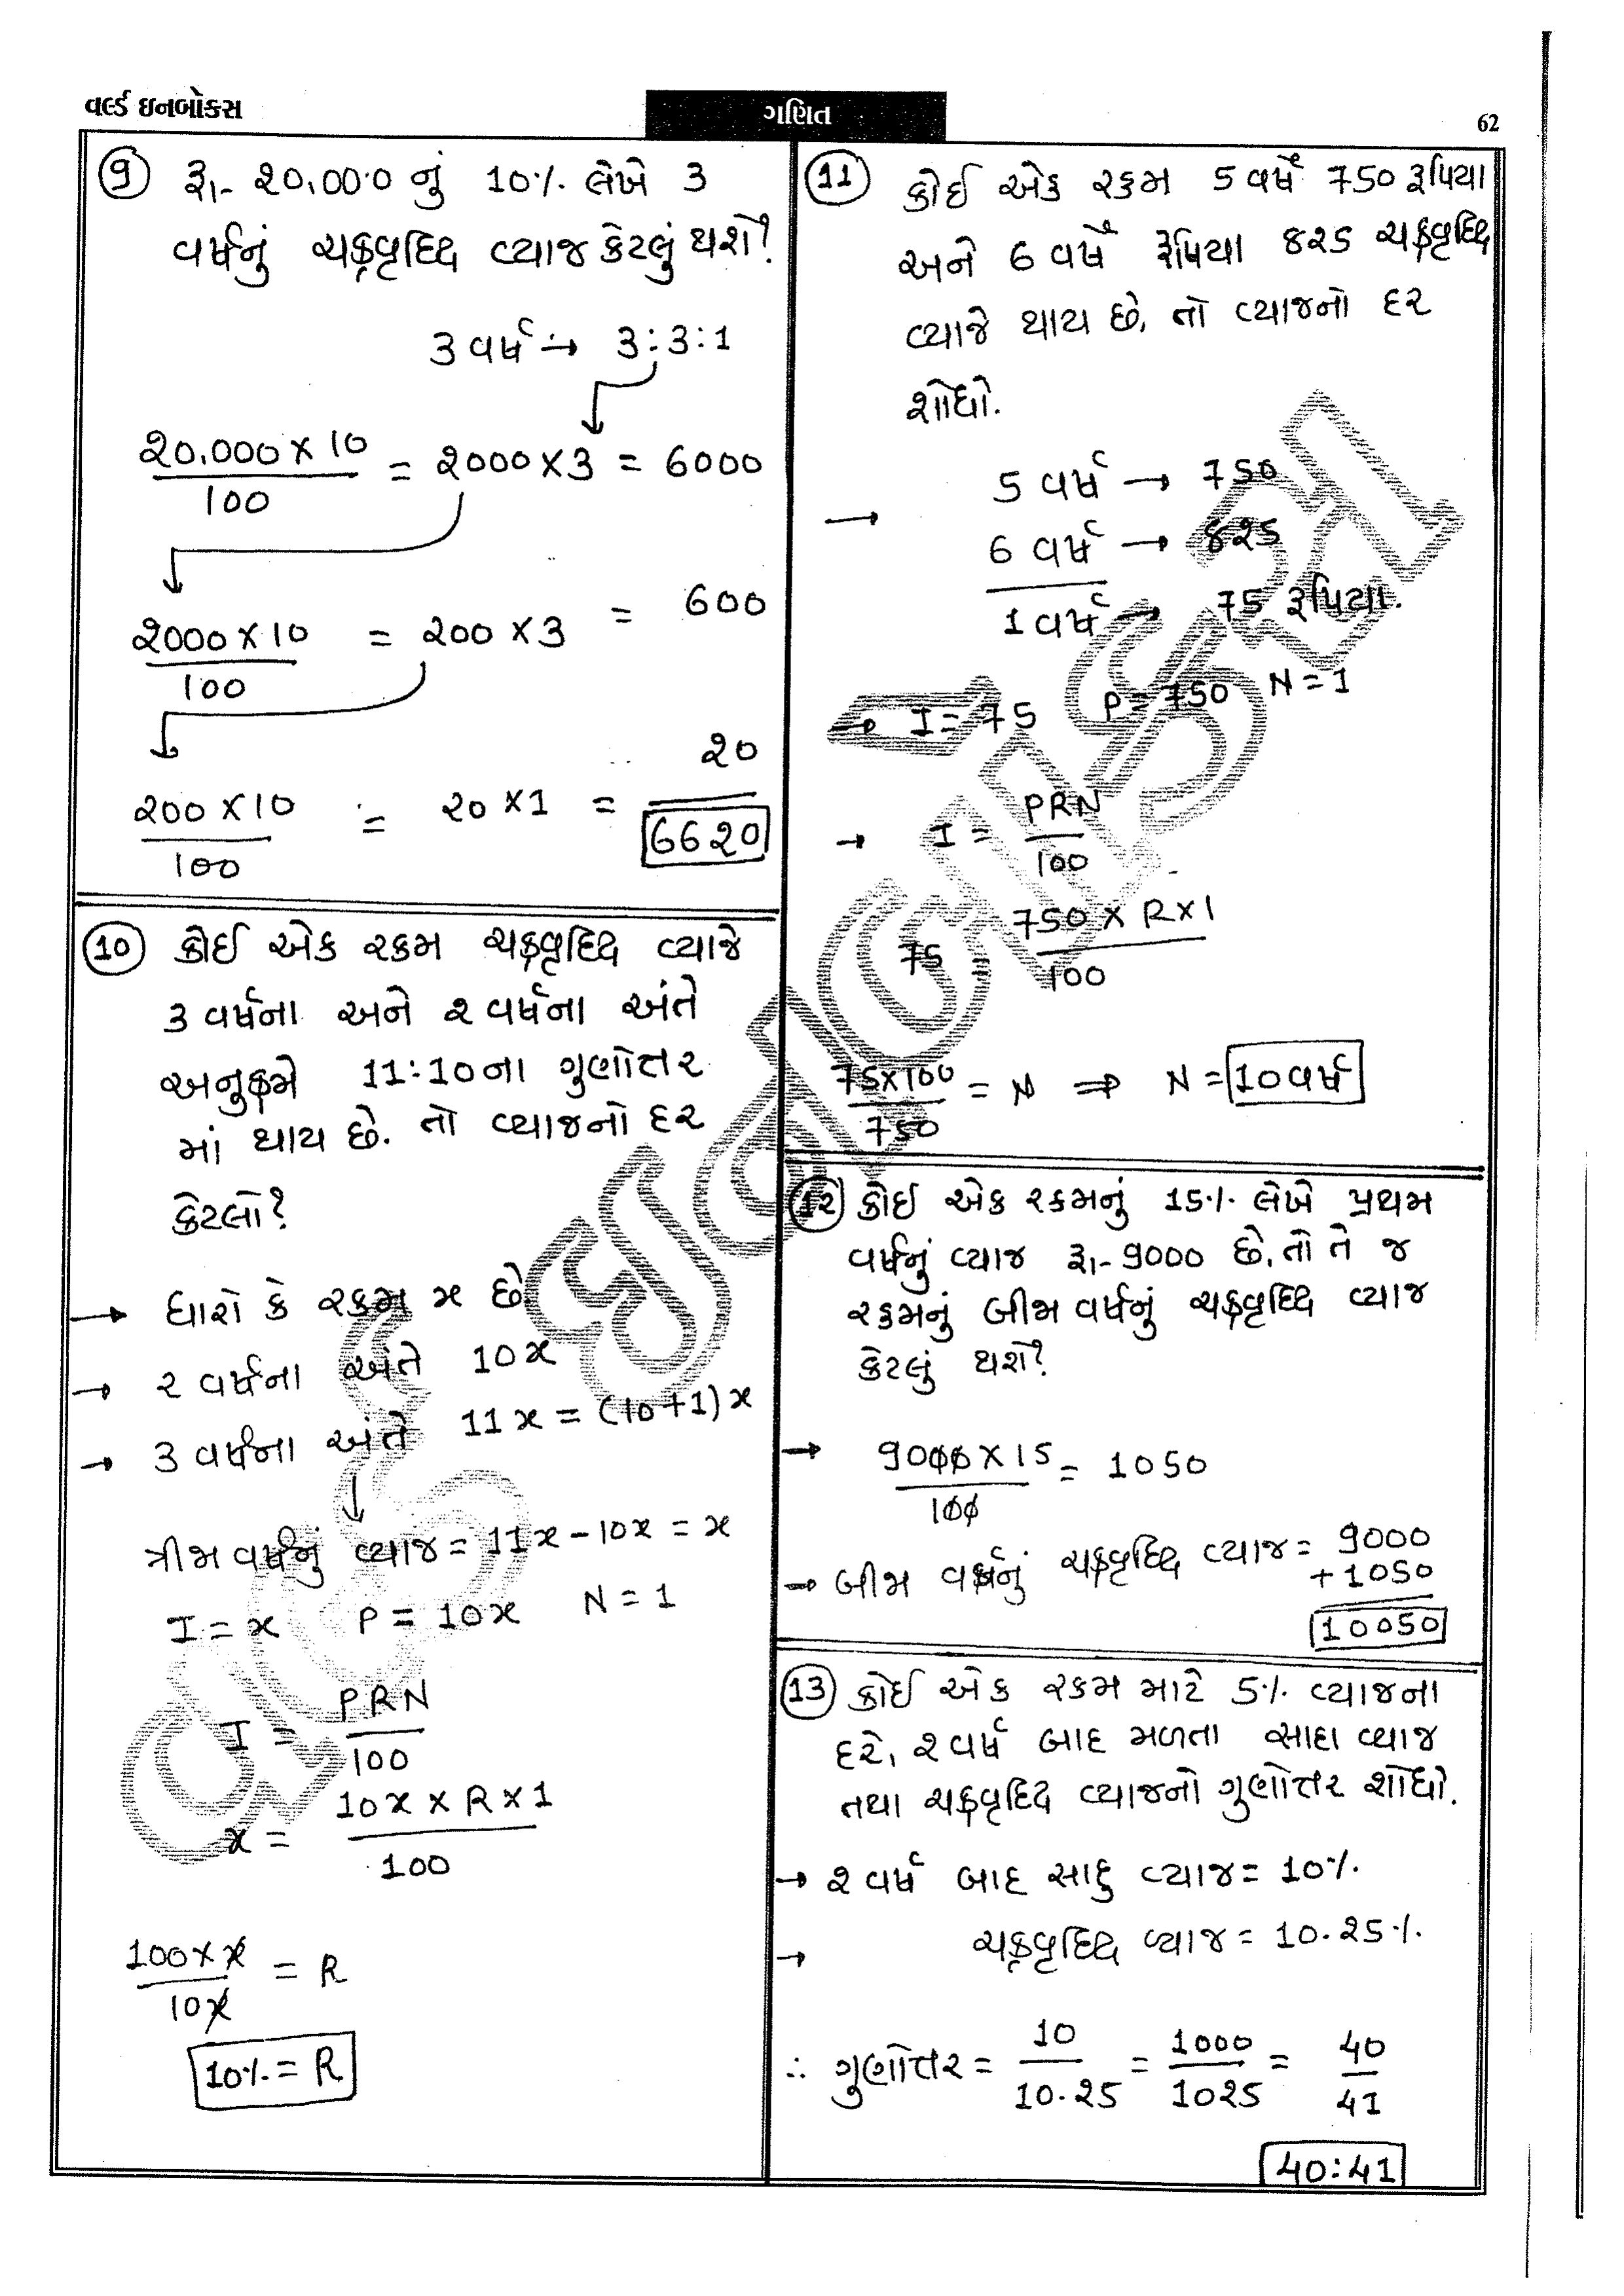 વર્લ્ડ ઇનબોક્સ
ગણિત
62
9 રૂ।- ૨0,000 નું 10% લેખે 3
વર્ષનું ચક્રવૃધ્ધિ વ્યાજ કેટલું થશે?
3 વર્ષ → 3:3:1
૨0,000 × 10 / 100 = ૨000 × 3 = 6000
૨000 × 10 / 100 = ૨00 × 3 = 600
૨00 × 10 / 100 = ૨0 × 1 = ૨0
66૨0
10 કોઈ એક રકમ ચક્રવૃધ્ધિ વ્યાજે
3 વર્ષના અને ૨ વર્ષના અંતે
અનુક્રમે 11:10 ના ગુણોત્તર
માં થાય છે. તો વ્યાજનો દર
કેટલો?
→ ધારો કે રકમ x છે
→ ૨ વર્ષના અંતે 10x
→ 3 વર્ષના અંતે 11x = (10+1)x
ત્રીજા વર્ષનું વ્યાજ = 11x - 10x = x
I = x P = 10x N = 1
I = PRN / 100
x = 10x × R × 1 / 100
100 × x / 10x = R
10% = R
11 કોઈ એક રકમ 5 વર્ષે 750 રૂપિયા
અને 6 વર્ષે રૂપિયા 8૨5 ચક્રવૃધ્ધિ
વ્યાજે થાય છે, તો વ્યાજનો દર
શોધો.
→ 5 વર્ષ → 750
6 વર્ષ → 8૨5
1 વર્ષ → 75 રૂપિયા.
→ I = 75 P = 750 N = 1
→ I = PRN / 100
75 = 750 × R × 1 / 100
75 × 100 / 750 = N ⇒ N = 10 વર્ષ
12 કોઈ એક રકમનું 15% લેખે પ્રથમ
વર્ષનું વ્યાજ રૂ।- 9000 છે, તો તે જ
રકમનું બીજા વર્ષનું ચક્રવૃધ્ધિ વ્યાજ
કેટલું થશે?
→ 9000 × 15 / 100 = 1050
→ બીજા વર્ષનું ચક્રવૃધ્ધિ વ્યાજ = 9000
+ 1050
10050
13 કોઈ એક રકમ માટે 5% વ્યાજના
દરે, ૨ વર્ષ બાદ મળતા સાદા વ્યાજ
તથા ચક્રવૃધ્ધિ વ્યાજનો ગુણોત્તર શોધો.
→ ૨ વર્ષ બાદ સાદુ વ્યાજ = 10%
→ ચક્રવૃધ્ધિ વ્યાજ = 10.૨5%
∴ ગુણોત્તર = 10 / 10.૨5 = 1000 / 10૨5 = 40 / 41
40:41